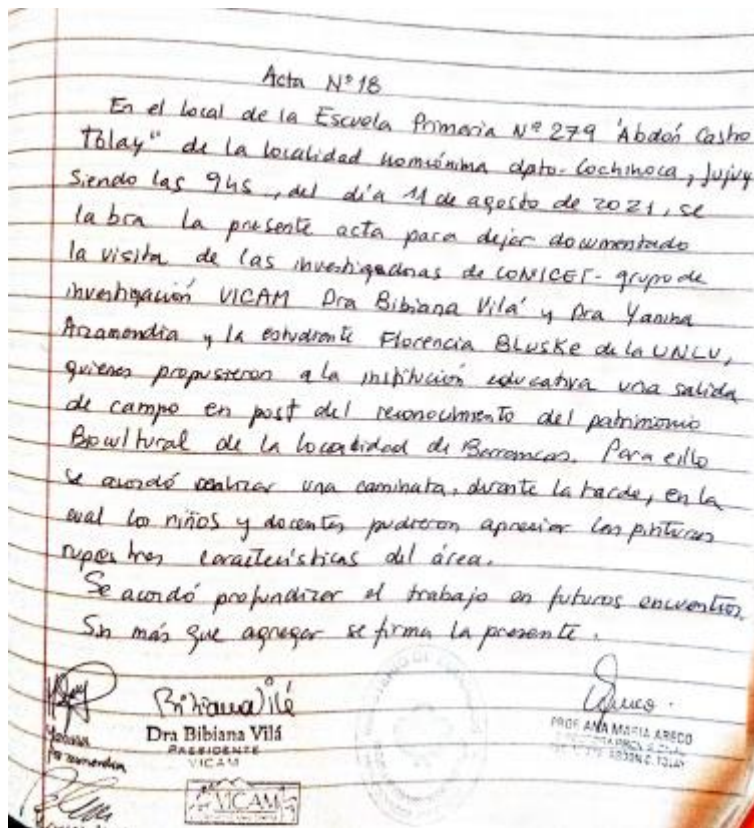 Acta Nº 18
En el local de la Escuela Primaria Nº 279 "Abdón Castro
Tolay" de la localidad homónima dpto. Cochinoca, Jujuy
Siendo las 9hs, del día 11 de agosto de 2021, se
la bra la presente acta para dejar documentado
la visita de las investigadoras de CONICET - grupo de
investigación VICAM Dra Bibiana Vilá y Dra Yanina
Arzamendia y la estudiante Florencia BLUSKE de la UNLU,
quienes propusieron a la institución educativa una salida
de campo en post del reconocimiento del patrimonio
Biocultural de la localidad de Barrancas. Para ello
se acordó realizar una caminata, durante la tarde, en la
cual los niños y docentes pudieron apreciar las pinturas
rupes tres características del área.
Se acordó profundizar el trabajo en futuros encuentros.
Sin más que agregar se firma la presente.
Bibiana Vilá
Dra Bibiana Vilá
PRESIDENTE
VICAM
Yanina
Arzamendia
VICAM
PROF. ANA MARIA ARECO